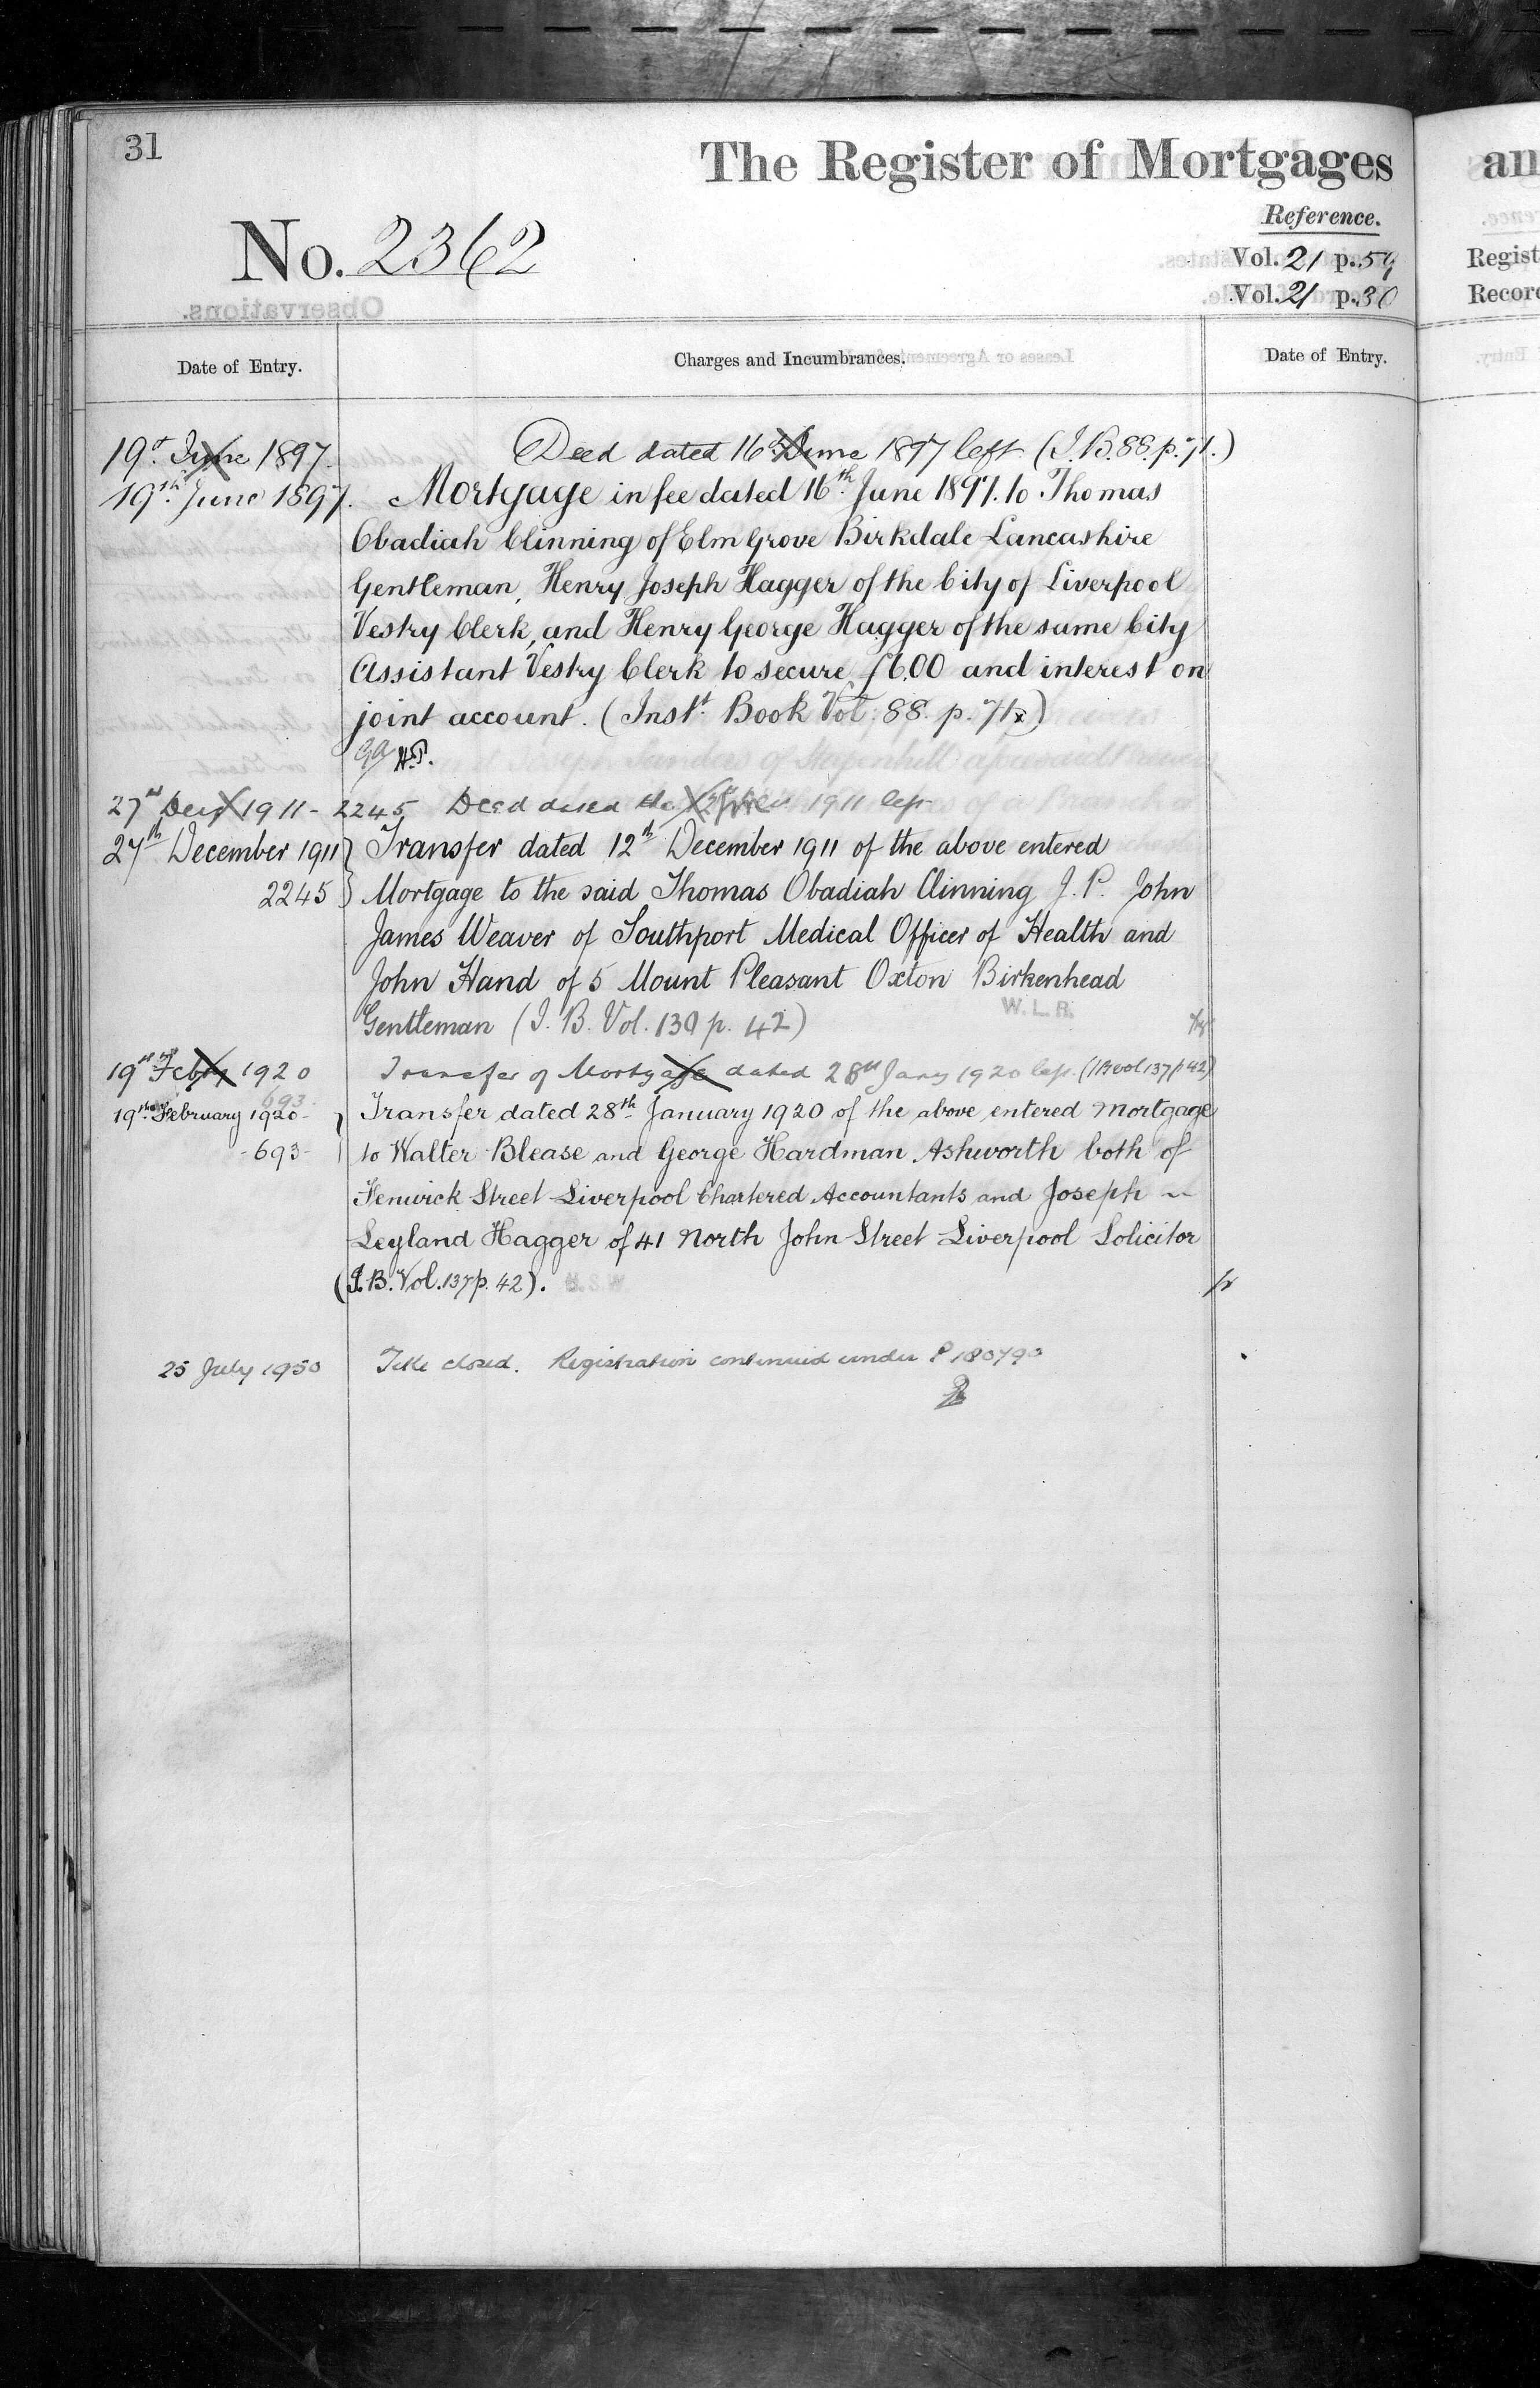 31
The Register of Mortgages
an
Reference.
No. 2362
Vol. 21 p. 59
Regist
Vol. 21 p. 30
Record
Date of Entry.
Charges and Incumbrances.
Date of Entry.
19th June 1897. Deed dated 16th June 1897 left (I.B. 88. p. 71.)
19th June 1897. Mortgage in fee dated 16th June 1897. to Thomas
Obadiah Clinning of Elm Grove Birkdale Lancashire
Gentleman, Henry Joseph Hagger of the City of Liverpool
Vestry Clerk, and Henry George Hagger of the same City
Assistant Vestry Clerk to secure £600 and interest on
joint account. (Inst. Book Vol. 88. p. 71)
27th Decr 1911 - 2245 Deed dated the 12th Decr 1911 left
27th December 1911 Transfer dated 12th December 1911 of the above entered
2245 Mortgage to the said Thomas Obadiah Clinning J. P. John
James Weaver of Southport Medical Officer of Health and
John Hand of 5 Mount Pleasant Oxton Birkenhead
W.L.R.
Gentleman (I. B. Vol. 130 p. 42)
19th Feby 1920 Transfer of Mortgage dated 28th Jany 1920 left. (IB Vol 137 p 42)
693
19th February 1920 - Transfer dated 28th January 1920 of the above entered Mortgage
- 693 - to Walter Blease and George Hardman Ashworth both of
Fenwick Street Liverpool Chartered Accountants and Joseph
Leyland Hagger of 41 North John Street Liverpool Solicitor
(I.B. Vol. 137 p. 42). H.S.W
25 July 1950 Title closed. Registration continued under P 180790